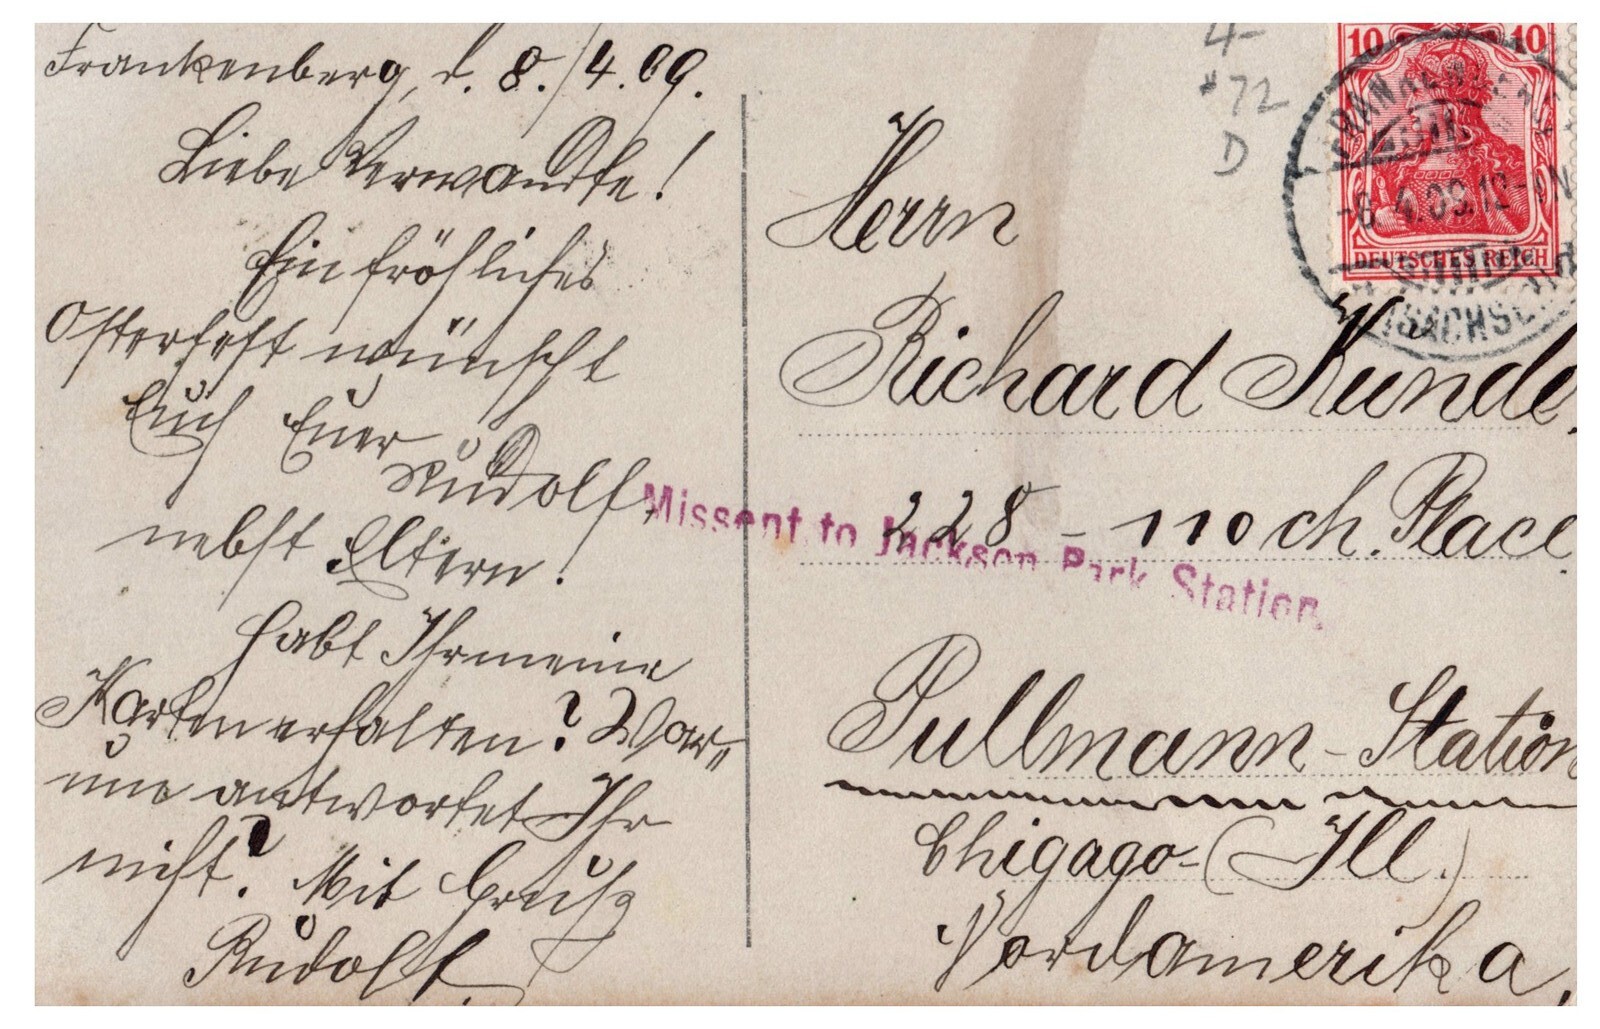 Frankenberg, d. 8./4.09.
Liebe Verwandte!
Ein fröhliches
Osterfest wünscht
Euch Euer
Rudolf,
nebst Eltern!
Habt Ihr meine
Karten erhalten? War„
um antwortet Ihr
nicht? Mit Gruß
Rudolf.
4-
*72
D
10 10
DEUTSCHES REICH
-8.4.09.12-1N.
(SACHSEN)
Herrn
Richard Kunde,
228 - 110 ch. Place
Missent to Jackson Park Station.
Pullmann-Station
Chigago-(Ill.)
Nordamerika,